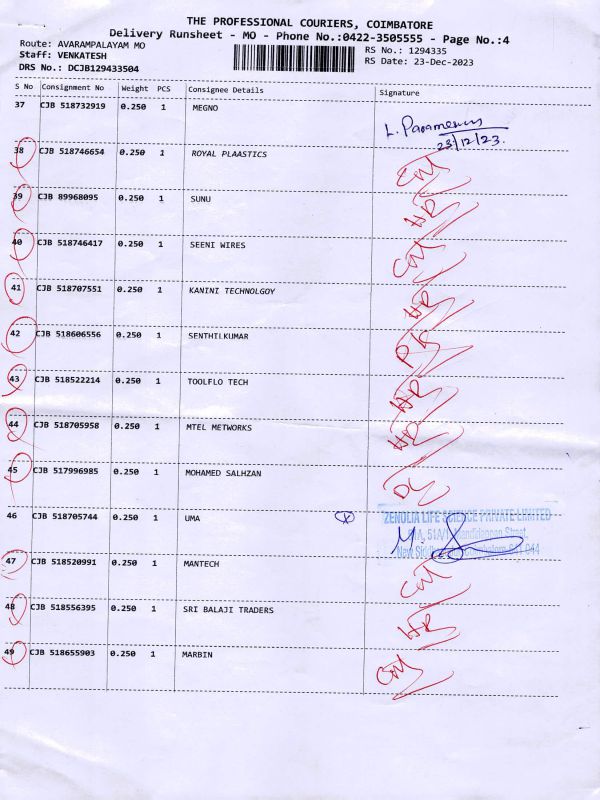 THE PROFESSIONAL COURIERS, COIMBATORE
Delivery Runsheet - MO - Phone No.:0422-3505555 - Page No.:4
Route: AVARAMPALAYAM MO
RS No.: 1294335
Staff: VENKATESH
RS Date: 23-Dec-2023
DRS No.: DCJB129433504
S No Consignment No Weight PCS Consignee Details Signature
37 CJB 518732919 0.250 1 MEGNO
23/12/23.
38 CJB 518746654 0.250 1 ROYAL PLAASTICS
39 CJB 89968095 0.250 1 SUNU HR
40 CJB 518746417 0.250 1 SEENI WIRES
41 CJB 518707551 0.250 1 KANINI TECHNOLGOY HR
42 CJB 518606556 0.250 1 SENTHILKUMAR
43 CJB 518522214 0.250 1 TOOLFLO TECH HR
44 CJB 518705958 0.250 1 MTEL METWORKS HR
45 CJB 517996985 0.250 1 MOHAMED SALHZAN DL
46 CJB 518705744 0.250 1 UMA
ZENOLIA LIFE SCIENCE PRIVATE LIMITED
47 CJB 518520991 0.250 1 MANTECH
48 CJB 518556395 0.250 1 SRI BALAJI TRADERS HR
49 CJB 518655903 0.250 1 MARBIN